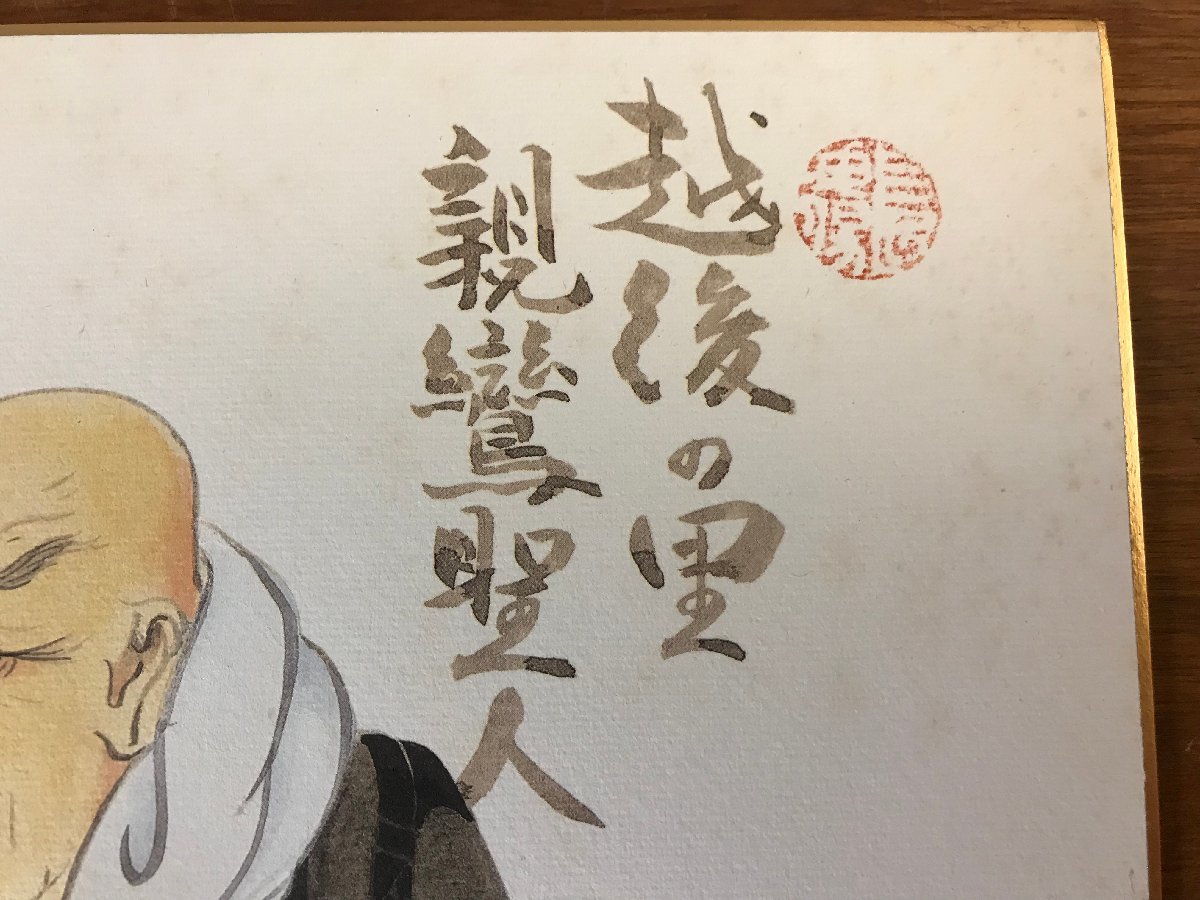 越後の里
親鸞聖人